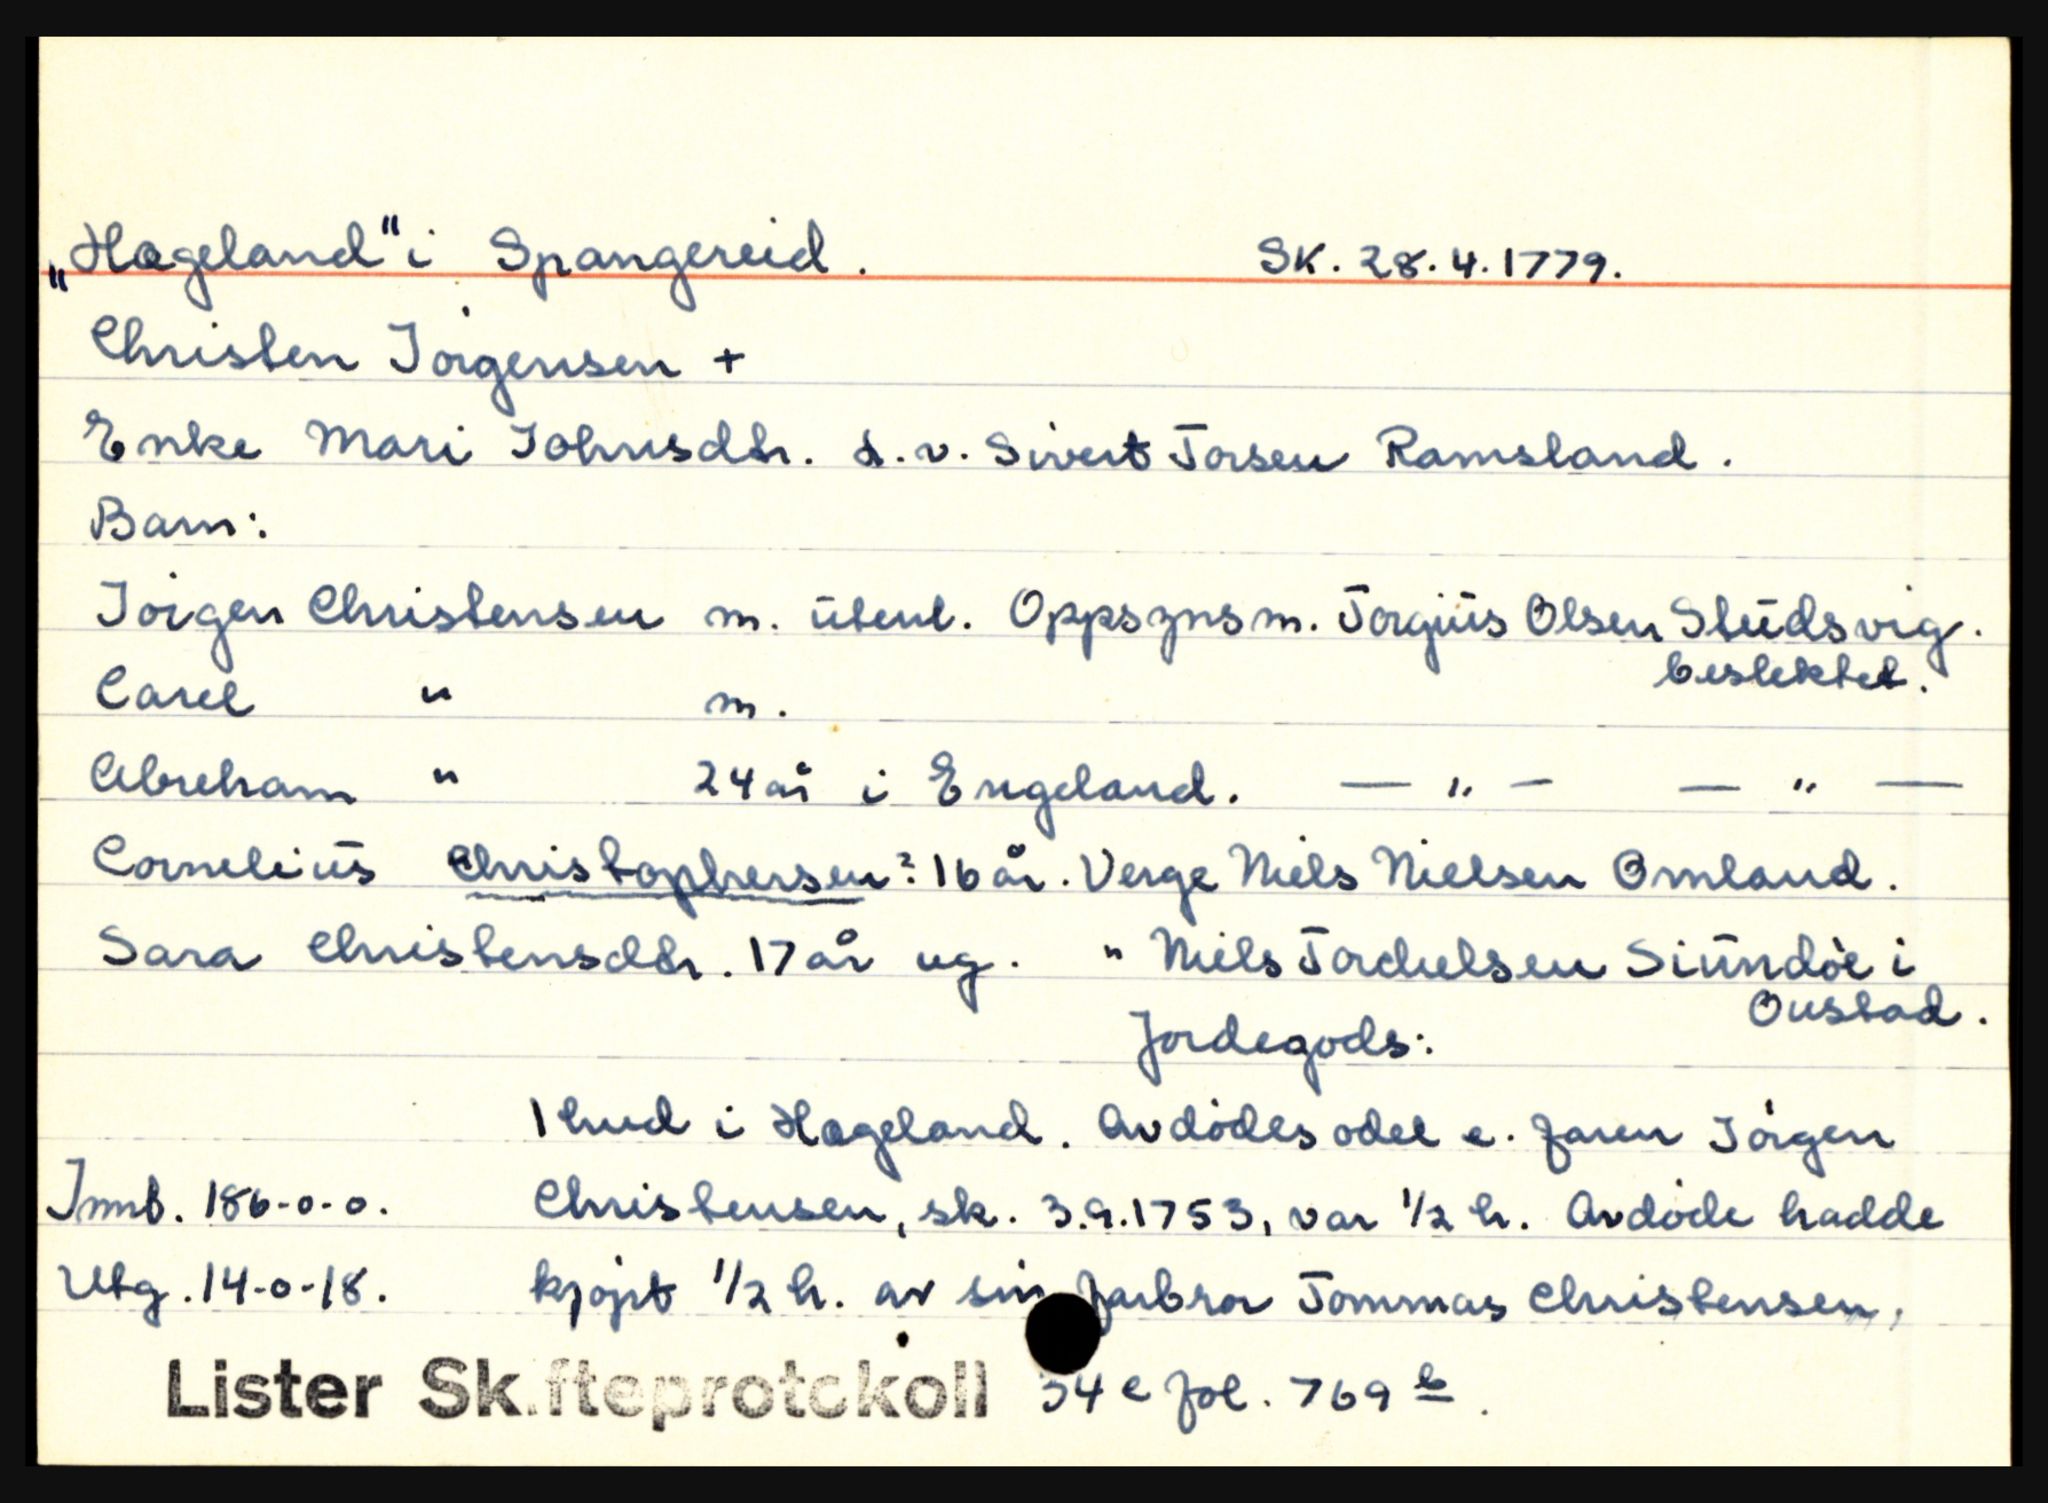 „Hageland" i Spangereid. SK. 28.4.1779.
Christen Jørgensen +
Enke Mari Johnsdtr. d.v. Sivert Torsen Ramsland.
Barn:
Jørgen Christensen m. ütenl. Oppsynsm. Torgiüs Olsen Stüdsvig.
beslektet.
Carel " m.
Abreham " 24 år i Engeland. — " — — " —
Corneliüs Christophersen? 16 år. Verge Niels Nielsen Omland.
Sara Christensdtr. 17 år ug. " Niels Torchelsen Siündøe i
Oustad.
Jordegods:
1 hud i Hageland. Avdødes odel e. faren Jørgen
Innb. 186-0-0. Christensen, sk. 3.9.1753, var 1/2 h. Avdøde hadde
Utg. 14-0-18. kjøpt 1/2 h. av sin farbror Tommas Christensen.
Lister Skifteprotokoll 34 e fol. 769 b.